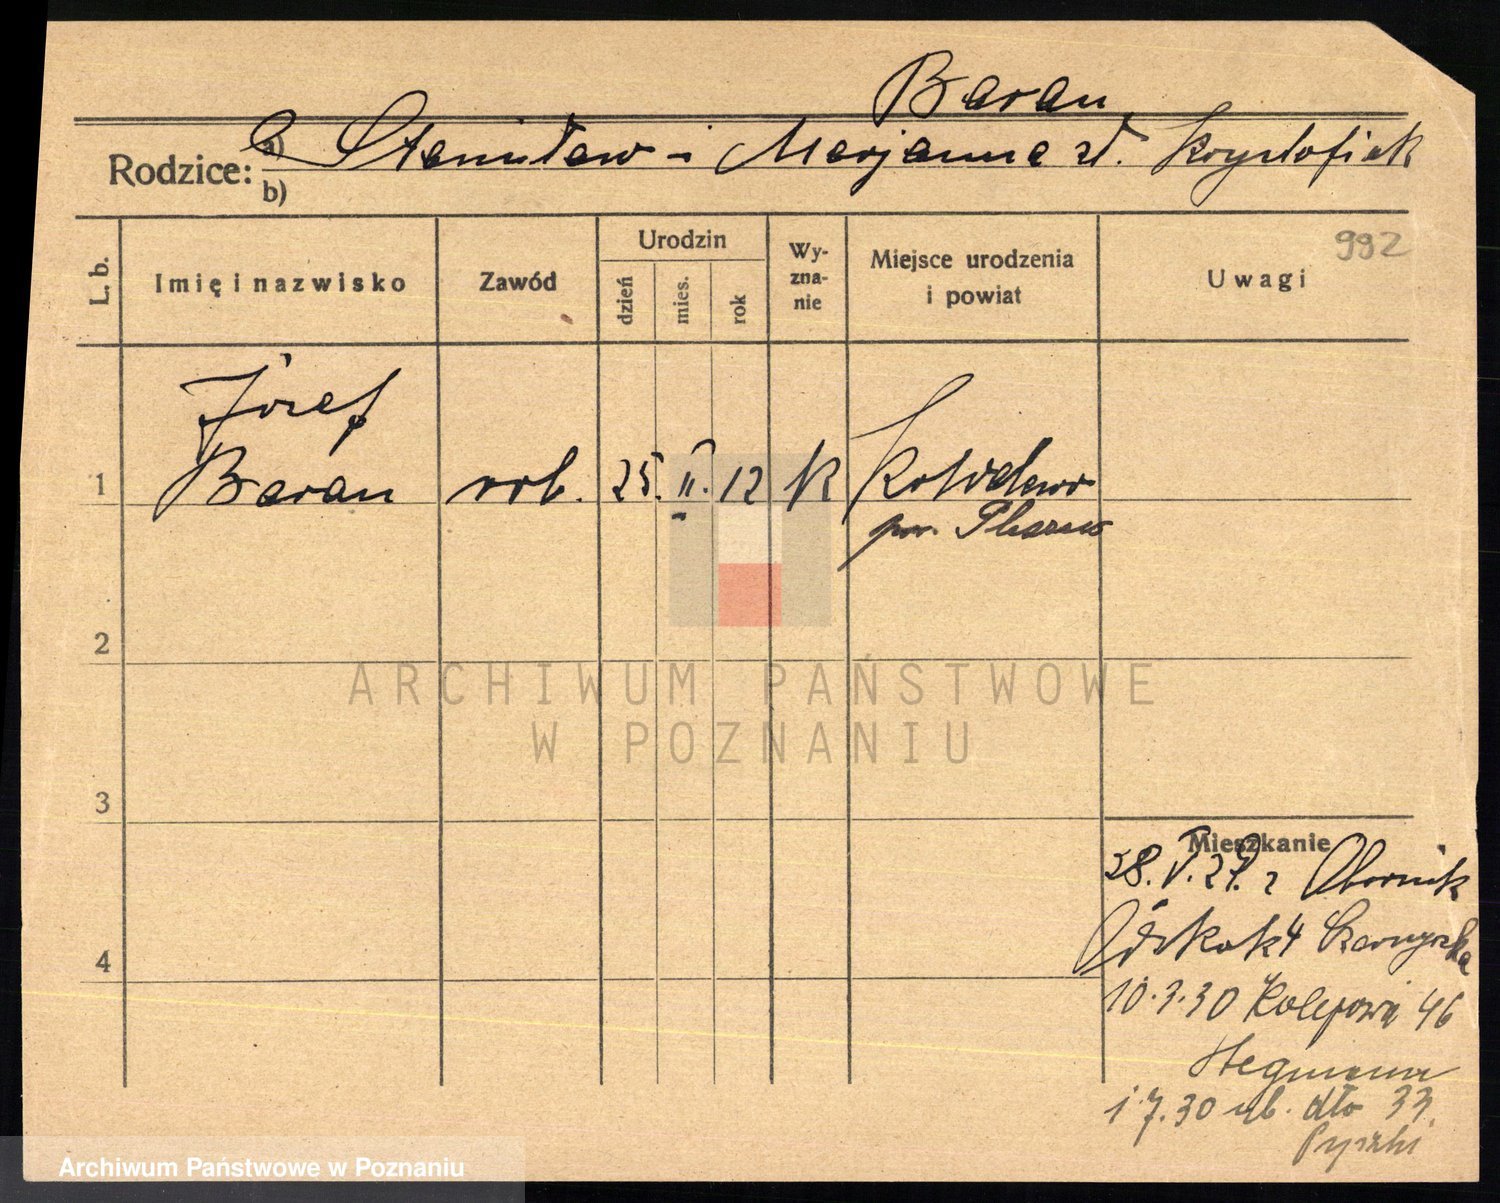 Baran
Rodzice: a) Stanisław i Marjanna zd. Krysztofiak
b)
992
L. b. Imię i nazwisko Zawód Urodzin dzień mies. rok Wyznanie Miejsce urodzenia i powiat Uwagi
Józef
1 Baran rob. 25. II. 12 K Kotwlewo
pow. Pleszew
2
ARCHIWUM PAŃSTWOWE
W POZNANIU
3
Mieszkanie
28. V. 29. z Obornik
4 Szamarzewska
10.3.30 Kolejowa 46
4
Hegmann
1.7.30 ub. dto 33
Pyszki
Archiwum Państwowe w Poznaniu